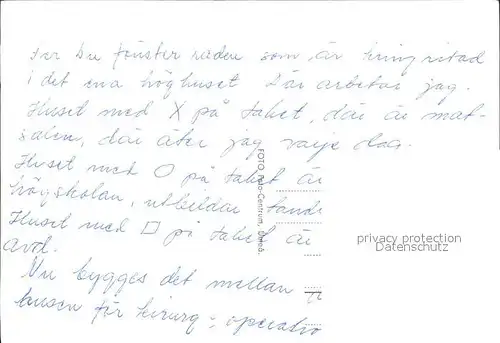 Ser Du fönster raden som är kring ritad
i det ena höghuset Där arbetar jag.
Huset med X på taket, där är mat-
salen, där äter jag varje dag.
Huset med O på taket är
högskolan, utbildar tand
Huset med □ på taket är
avd.
Nu bygges det mellan
husen för kirurg - operatio
FOTO
-Centrum,
privacy protection
Datenschutz